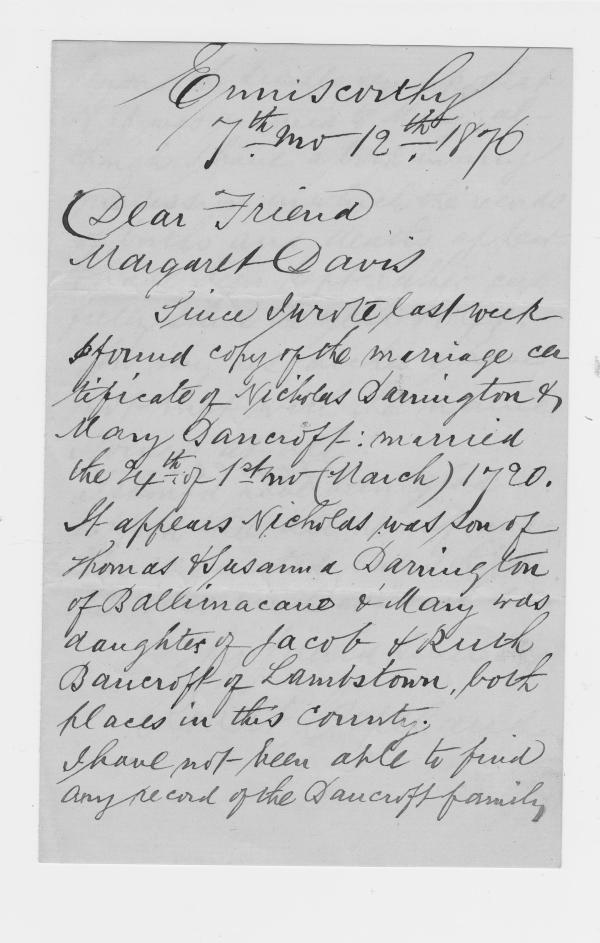 Enniscorthy
7th mo 12th 1876
Dear Friend
Margaret Davis
Since I wrote last week
I found copy of the marriage cer
tificate of Nicholas Darrington &
Mary Bancroft: married
the 24th of 1st mo (March) 1720.
It appears Nicholas was son of
Thomas & Susanna Darrington
of Ballimacane & Mary was
daughter of Jacob & Ruth
Bancroft of Lambstown, both
places in this County.
I have not been able to find
any record of the Bancroft family